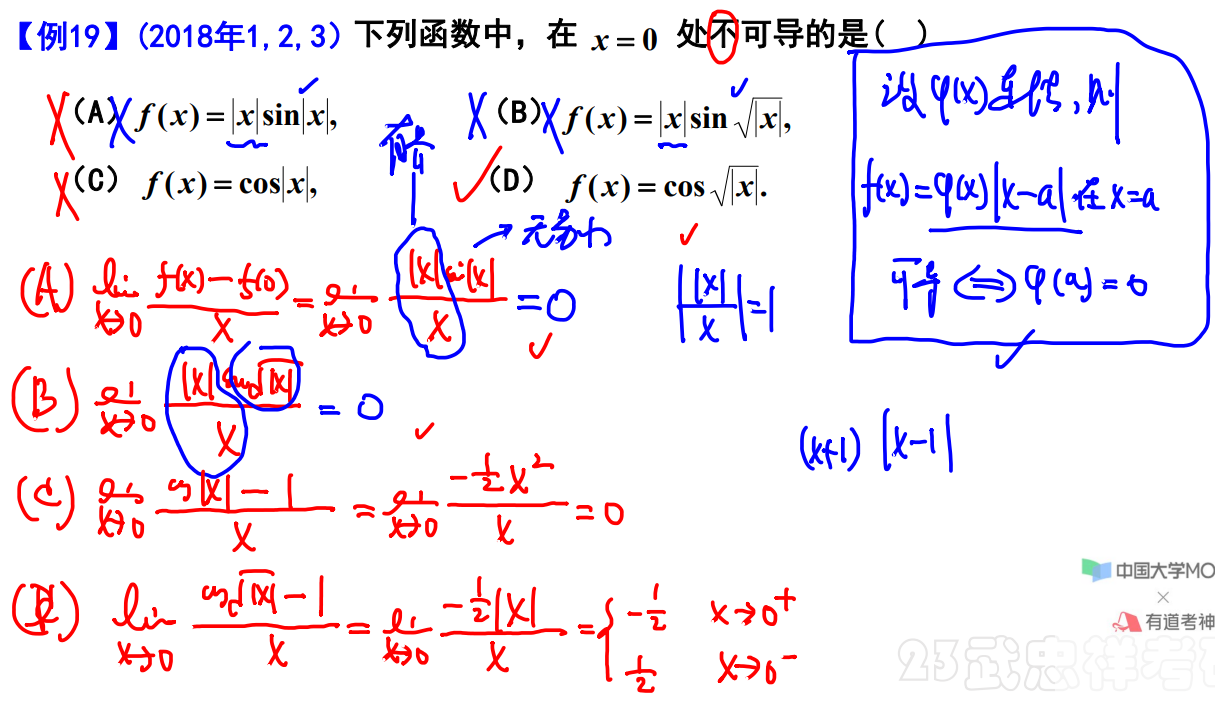 【例19】(2018年1,2,3) 下列函数中，在 x = 0 处不可导的是( )
(A) f(x) = |x| sin|x|, (B) f(x) = |x| sin √|x|,
(C) f(x) = cos|x|, (D) f(x) = cos √|x|.
设 φ(x) 连续，则
f(x) = φ(x)|x-a| 在 x=a
可导 ⟺ φ(a) = 0
有界
→ 无穷小
(A) lim x→0 (f(x) - f(0))/x = lim x→0 |x| sin|x| / x = 0
| |x|/x | = 1
(B) lim x→0 |x| sin √|x| / x = 0
(x+1) |x-1|
(C) lim x→0 (cos|x| - 1)/x = lim x→0 (-½x²)/x = 0
lim x→0 (cos √|x| - 1)/x = lim x→0 (-½|x|)/x = { -½ x→0⁺
½ x→0⁻
中国大学MO
×
有道考神
23武忠祥考研